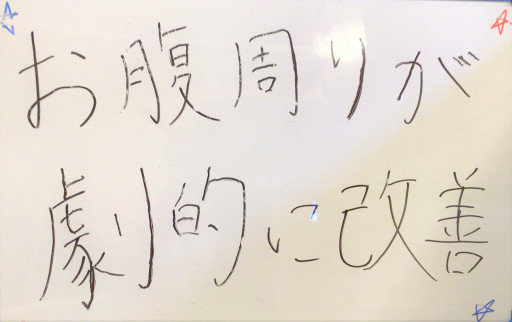 お腹周りが
劇的に改善